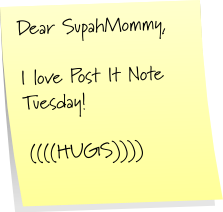 Dear SupahMommy,
I love Post It Note
Tuesday!
((((HUGS))))